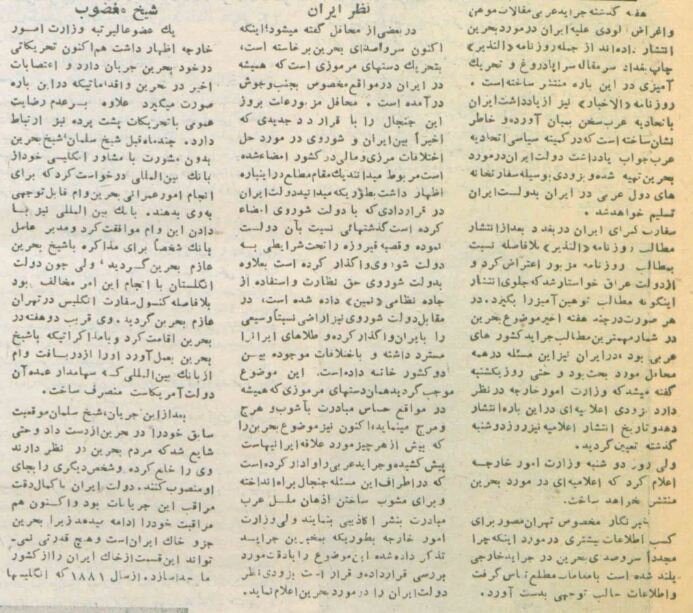 هفته گذشته جراید عربی مقالات موهن
واغراض آلودی علیه ایران درمورد بحرین
انتشار داده‌اند از جمله روزنامه «النذیر»
چاپ بغداد سرمقاله سراپا دروغ و تحریک
آمیزی در این باره منتشر ساخته است .
روزنامه «الاخبار» نیز از یادداشت ایران
باتحادیه عرب سخن بمیان آورده و خاطر
نشان ساخته است که در کمیته سیاسی اتحادیه
عرب جواب یادداشت دولت ایران درمورد
بحرین تهیه شده و بزودی بوسیله سفارتخانه
های دول عربی در ایران بدولت ایران
تسلیم خواهد شد .
سفارت کبرای ایران در بغداد بعد از انتشار
مطالب روزنامه «النذیر» بلافاصله نسبت
بمطالب روزنامه مزبور اعتراض کرد و
از دولت عراق خواستار شد که جلوی انتشار
اینگونه مطالب توهین آمیز را بگیرد. در
هر صورت در چند هفته اخیر موضوع بحرین
در شمار مهمترین مطالب جراید کشور های
عربی بود ، در ایران نیز این مسئله در همه
محافل مورد بحث بود و حتی روز یکشنبه
گفته میشد که وزارت امور خارجه در نظر
دارد بزودی اعلامیه‌ای در این باره انتشار
دهد و تاریخ انتشار اعلامیه نیز روز دوشنبه
گذشته تعیین گردید.
ولی روز دو شنبه وزارت امور خارجه
اعلام کرد که اعلامیه‌ای در مورد بحرین
منتشر نخواهد ساخت.
خبرنگار مخصوص تهران مصور برای
کسب اطلاعات بیشتری در مورد اینکه چرا
مجدداً سروصدای بحرین در جراید خارجی
بلند شده است با مقامات مطلع تماس گرفت
و اطلاعات جالب توجهی بدست آورد.
نظر ایران
در بعضی از محافل گفته میشود؛ اینکه
اکنون سروصدای بحرین برخاسته است ،
بتحریک دستهای مرموزی است که همیشه
در ایران در مواقع مخصوص بجنب و جوش
در آمده است . محافل مزبور علت بروز
این جنجال را با قرار داد جدیدی که
اخیراً بین ایران و شوروی در مورد حل
اختلافات مرزی و مالی در کشور امضا شده
است مربوط میدانند یک مقام مطلع در اینباره
اظهار داشت بطوریکه میدانید دولت ایران
در قراردادی که با دولت شوروی امضاء
کرده است گذشتهائی نسبت بآن دولت
نموده و قصبه فیروزه را تحت شرایطی به
دولت شوروی واگذار کرده است بعلاوه
بدولت شوروی حق نظارت و استفاده از
جاده نظامی (نمین) داده شده است، در
مقابل دولت شوروی نیز اراضی نسبتاً وسیعی
را بایران واگذار کرده و طلاهای ایران را
مسترد داشته و باختلافات موجوده بین
دو کشور خاتمه داده است. این موضوع
موجب گردید همان دستهای مرموزی که همیشه
در مواقع حساس مبادرت بآشوب و هرج
و مرج مینماید، اکنون نیز موضوع بحرین را
که بیش از هرچیز مورد علاقه ایرانیهاست
پیش کشیده و جراید عربی را وادار کرده است
که در اطراف این مسئله جنجال براه انداخته
و برای مشوب ساختن اذهان ملل عرب
مبادرت بنشر اکاذیبی بنمایند ولی وزارت
امور خارجه بطوریکه بمخبرین جراید
تذکر داده شده این موضوع را بادقت مورد
بررسی قرار داده و قرار است بزودی نظر
دولت ایران را در مورد بحرین اعلام نماید.
شیخ مغضوب
یک عضو عالیرتبه وزارت امور
خارجه اظهار داشت هم اکنون تحریکاتی
در خود بحرین جریان دارد و اعتصابات
اخیر در بحرین و اقداماتیکه در این باره
صورت میگیرد علاوه بر عدم رضایت
عمومی با تحریکات پشت پرده نیز ارتباط
دارد. چند ماه قبل شیخ سلمان، شیخ بحرین
بدون مشورت با مشاور انگلیسی خود از
بانک بین المللی درخواست کرد که برای
انجام امور عمرانی بحرین وام قابل توجهی
به وی بدهند. بانک بین المللی نیز با
دادن این وام موافقت کرد و مدیر عامل
بانک شخصاً برای مذاکره با شیخ بحرین
عازم بحرین گردید، ولی چون دولت
انگلستان با انجام این امر مخالف بود
بلافاصله کنسول سفارت انگلیس در تهران
عازم بحرین گردید. وی قریب دوهفته در
بحرین اقامت کرد و با مذاکراتیکه باشیخ
بحرین بعمل آورد او را از دریافت وام
از بانک بین المللی که سهامدار عمده آن
دولت آمریکاست منصرف ساخت.
بعد از این جریان، شیخ سلمان موقعیت
سابق خود را در بحرین از دست داد و حتی
شایع شد که مردم بحرین در نظر دارند
وی را خلع کرده و شخص دیگری را بجای
او منصوب کنند. دولت ایران با کمال دقت
مراقب این جریانات بود و اکنون هم
مراقبت خود را ادامه میدهد زیرا بحرین
جزو خاک ایران است و هیچ قدرتی نمی-
تواند این قسمت از خاک ایران را از کشور
ما جدا سازد. از سال ۱۸۸۱ که انگلیسها